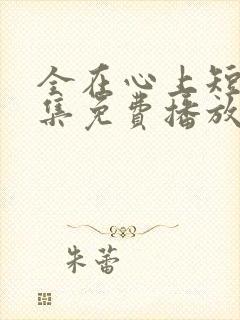 全在心上短
集免费播放
朱蕾